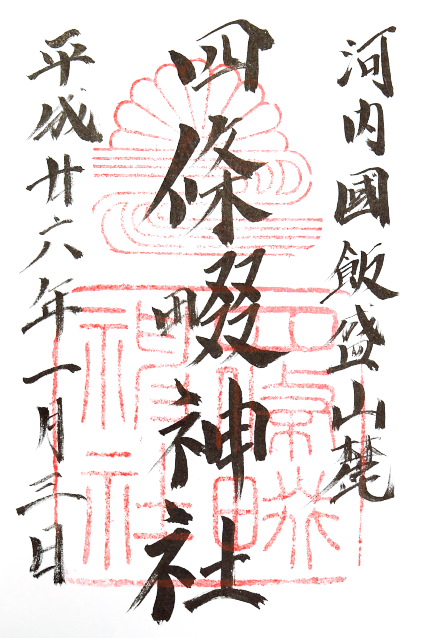 河内國飯盛山麓
四條畷神社
平成廿六年一月三日